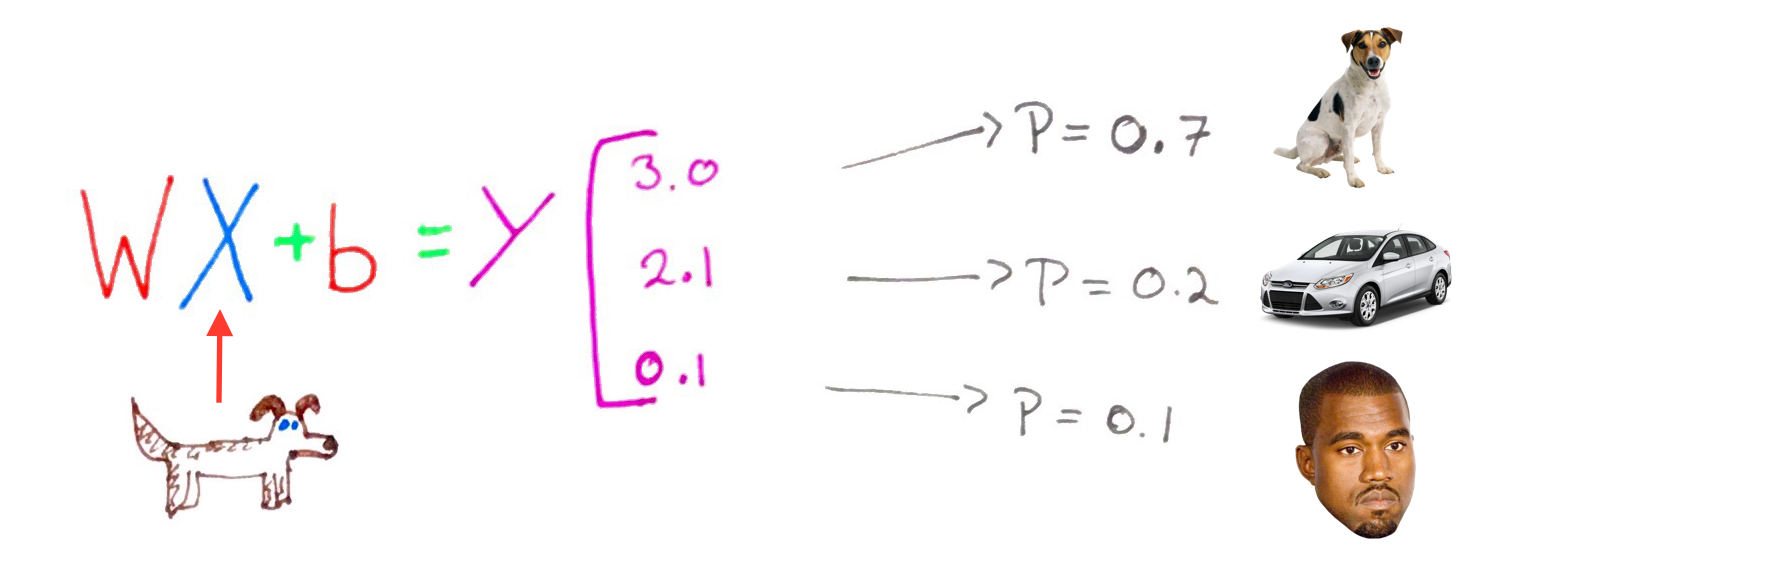 WX+b=Y
3.0
2.1
0.1
P=0.7
P=0.2
P=0.1